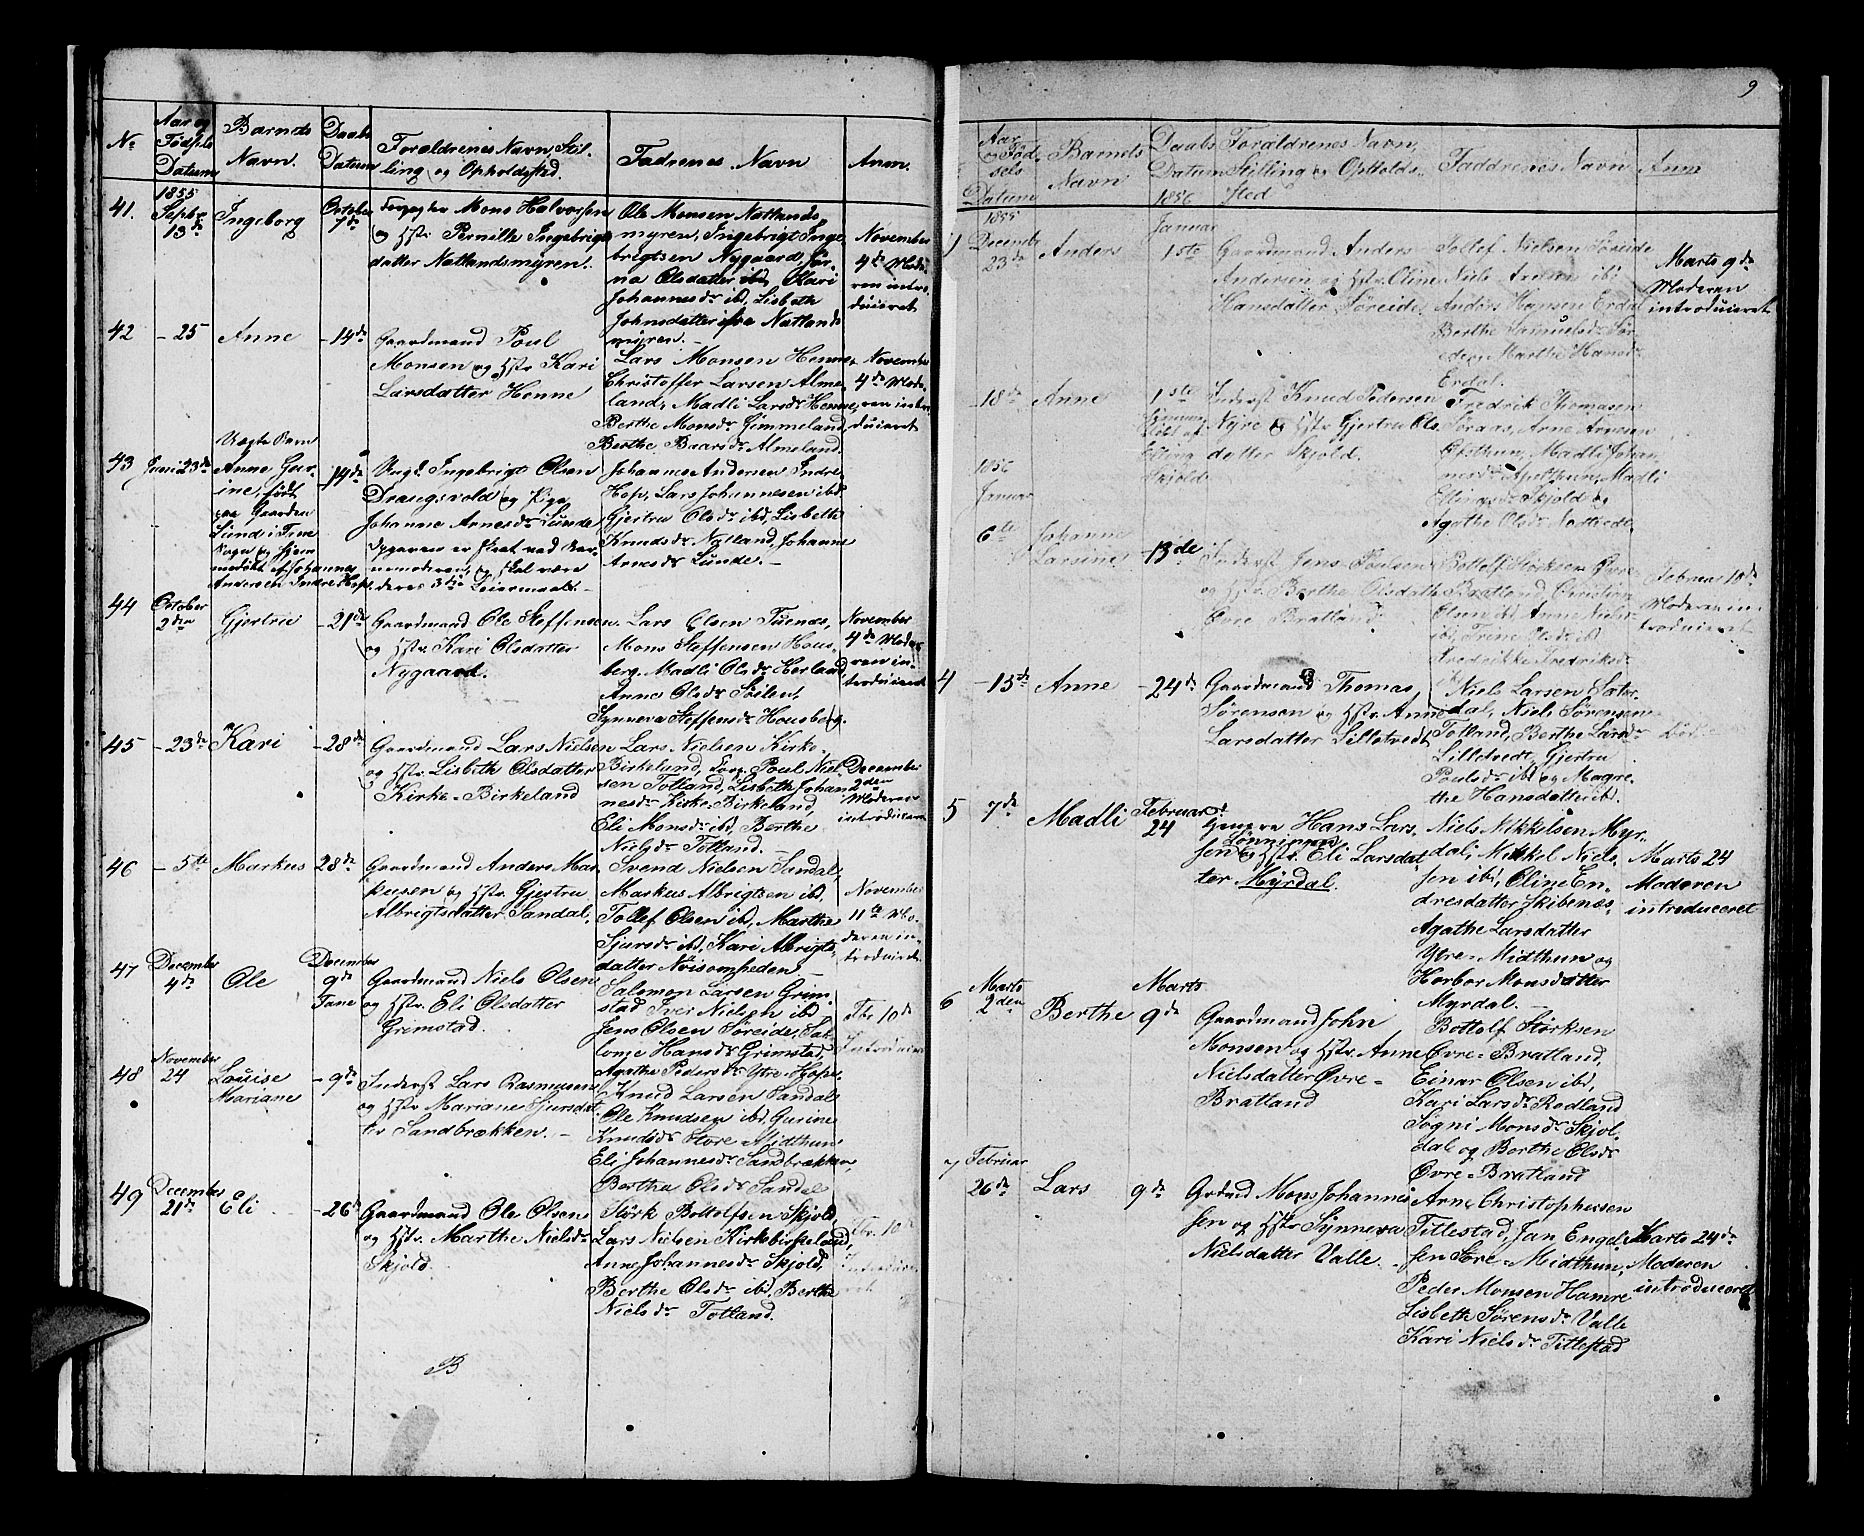 No
Aar og
Fødsels
Datum
Barnets
Navn.
Daabs
Datum
Forældrenes Navn, Stil-
ling og Opholdsted.
Fadrenes Navn
Anm.
41.
1855
Septbr
13de
Ingeborg
October
7de
Mons Halvorsen
og Hstr Pernille Ingebrigts
datter Natlandsmyren.
Ole Monsen Natlands-
myren, Ingebrigt Inge
brigtsen Nygaard,
Olsdatter ibd, Kari
Johannesdr ibd, Lisbeth
Johnsdatter Natlands
myren.
November
4de Mode-
ren intro-
duceret
42
- 25
Anne
- 14de
Gaardmand Poul
Monsen og Hstr Kari
Larsdatter Henne
Lars Monsen Henne,
Christoffer Larsen Alme-
land, Madli Larsdr Henne,
Berthe Monsdr Gimmeland
Berthe Baarsdr Almeland.
November
4de Mode-
ren intro
duceret
43
Juni 23de
Uægte Barn
Anne Gur-
ine, født
paa Gaarden
Lund i
Sogn og hjem
medøbt af Johannes
Andersen Indre Hop.
- 14de
Ungk. Ingebrigt Olsen
Drangsvold og Pige
Johanne Arnesdr Lunde
Opgaven er skeet ved Bar-
nemoderen, og skal være
deres 3die Leiermaal.
Johannes Andersen Indre
Hop, Lars Johannesen ibd
Gjertru Olsdr ibd, Lisbeth
Knudsdr Natland, Johanne
Arnesdr Lunde.
44
October
2den
Gjertru
- 21de
Gaardmand Ole Steffensen
og Hstr Kari Olsdatter
Nygaard.
Lars Olsen Tuenæs,
Mons Steffensen Hous-
berg, Madli Olsdr Herland
Anna Olsdr Søilen,
Synneva Steffensdr Housberg.
November
4de Mode-
ren in-
troduceret
45
- 23de
Kari
- 28de
Gaardmand Lars Nielsen
og Hstr Lisbeth Olsdatter
Kirke-Birkeland
Lars Nielsen Kirke-
Birkeland, Poul Niel
sen Totland, Lisbeth Johan
nesdr Kirke-Birkeland,
Eli Monsdr ibd, Berthe
Nielsdr Totland.
December
2den
Moderen
introduceret
46
- 5te
Markus
28de
Gaardmand Anders Mar
kusen og Hstr Gjertru
Albrigtsdatter Sandal.
Svend Nielsen Sandal,
Markus Albrigtsen ibd,
Tollef Olsen ibd, Marthe
Sjursdr ibd, Kari Albrigts
datter Nøisomheden
November
11te Mo-
deren in-
troduceret
47
December
4de
Ole
December
9de
Fane
Gaardmand Niels Olsen
og Hstr. Eli Olsdatter
Grimstad.
Salomon Larsen Grim-
stad, Iver Nielsen ibd
Jens Olsen Søreide, Sal-
Hansdr Grimstad,
Agathe Pedersdr Ytre-Hope
Fbr 10de
Introduceret
48
November
24
Louise
Mariane
- 9de
Inderst Lars Rasmusen
og Hstr Mariane Sjursdat
ter Sandbrækken.
Knud Larsen Sandal
Ole Knudsen ibd, Gurine
Knudsdr Store-Midthun
Eli Johannesdr Sandbrækken,
Berthe Olsdr Sandal
49
December
21de
Eli
- 26de
Gaardmand Ole Olsen
og Hstr. Marthe Nielsdr
Skjold.
Størk Bottolfsen Skjold,
Lars Nielsen Kirkebirkeland,
Anne Johannesdr Skjold,
Berthe Olsdr ibd, Berthe
Nielsdr Totland.
Fbr. 10de
Introduce-
ret
B
9
Aar
og Fød-
sels
Datum
Barnets
Navn
Daabs
Datum
1856
Forældrenes Navn,
Stilling og Opholds-
sted
Faddrenes Navn
Anm
1855
Decembr
23de
Anders
Januar
1ste
Gaardmand Anders
Andersen og Hstr. Oline
Hansdatter Søreide
Tollef Nielsen Søreide
Niels ibd
Anders Hansen Erdal
Berthe Samuelsdr Sør-
eide, Marthe Hansdr
Erdal.
Marts 9de
Moderen
introduceret
- 18de
Anne
1ste
Skjold
Inderst Knud Pedersen
og Hstr Gjertru Ols
datter Skjold.
Fredrik Thomasen
Arne Arnesen
Apelthun, Madli Johan
nesdr Apelthun, Madli
Ellingsdr Skjold og
Agathe Olsdr
1856
Januar
6te
Johanne
Larsine
- 13de
Inderst Jens Poulsen
og Hstr. Berthe Olsdatter
Øvre Bratland.
Bottolf Størksen Øvre
Bratland, Christian
Olsen ibd, Anne Niels-
dr ibd, Trine Olsdr ibd
Fredrikke Fredriksdr
Februar 10de
Moderen in-
troduceret
4
- 15de
Anne
- 24de
Gaardmand Thomas
Sørensen og Hstr. Anne
Larsdatter Lilletvedt
Niels Larsen Sæter
dal, Niels Sørensen
Totland, Berthe Larsdr
Lilletvedt, Gjertru
Poulsdr ibd og Magre-
the Hansdatter ibd.
5
7de
Madli
Februar
24
Hans Lars-
sen og Hstr. Eli Larsdat
ter Myrdal.
Niels Mikkelsen Myr-
dal, Mikkel Niel-
sen ibd, Oline En-
dresdatter Skibenæs
Agathe Larsdatter
Ytre-Midthun og
Herbor Monsdatter
Myrdal.
Marts 24
Moderen
introduceret
6
Marts
2den
Berthe
Marts
9de
Gaardmand John
Monsen og Hstr. Anne
Nielsdatter Øvre-
Bratland
Bottolf Størksen
Øvre-Bratland,
Einar Olsen ibd,
Kari Larsdr Rødland
Søgni Monsdr Skjol-
dal og Berthe Olsdr
Øvre-Bratland
7
Februar
26de
Lars
9de
Grdmd Mons Johannes
sen og Hstr Synneva
Nielsdatter Valle.
Arne Christophersen
Titlestad, Jan Engel-
sen Store-Midthun,
Peder Monsen Hamre
Lisbeth Sørensdr Valle
Kari Nielsdr Titlestad
Marts 24de
Moderen
introduceret